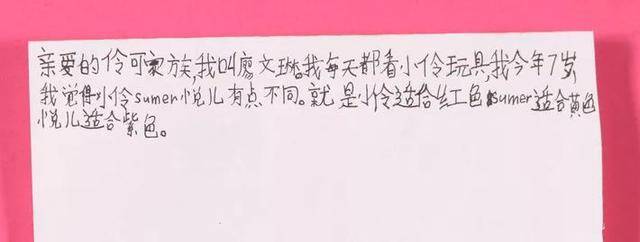 亲爱的伶可家族,我叫廖文琳,我每天都看小伶玩具,我今年7岁,
我觉得小伶sumer悦儿有点不同。就是小伶适合红色sumer适合黄色
悦儿适合紫色。